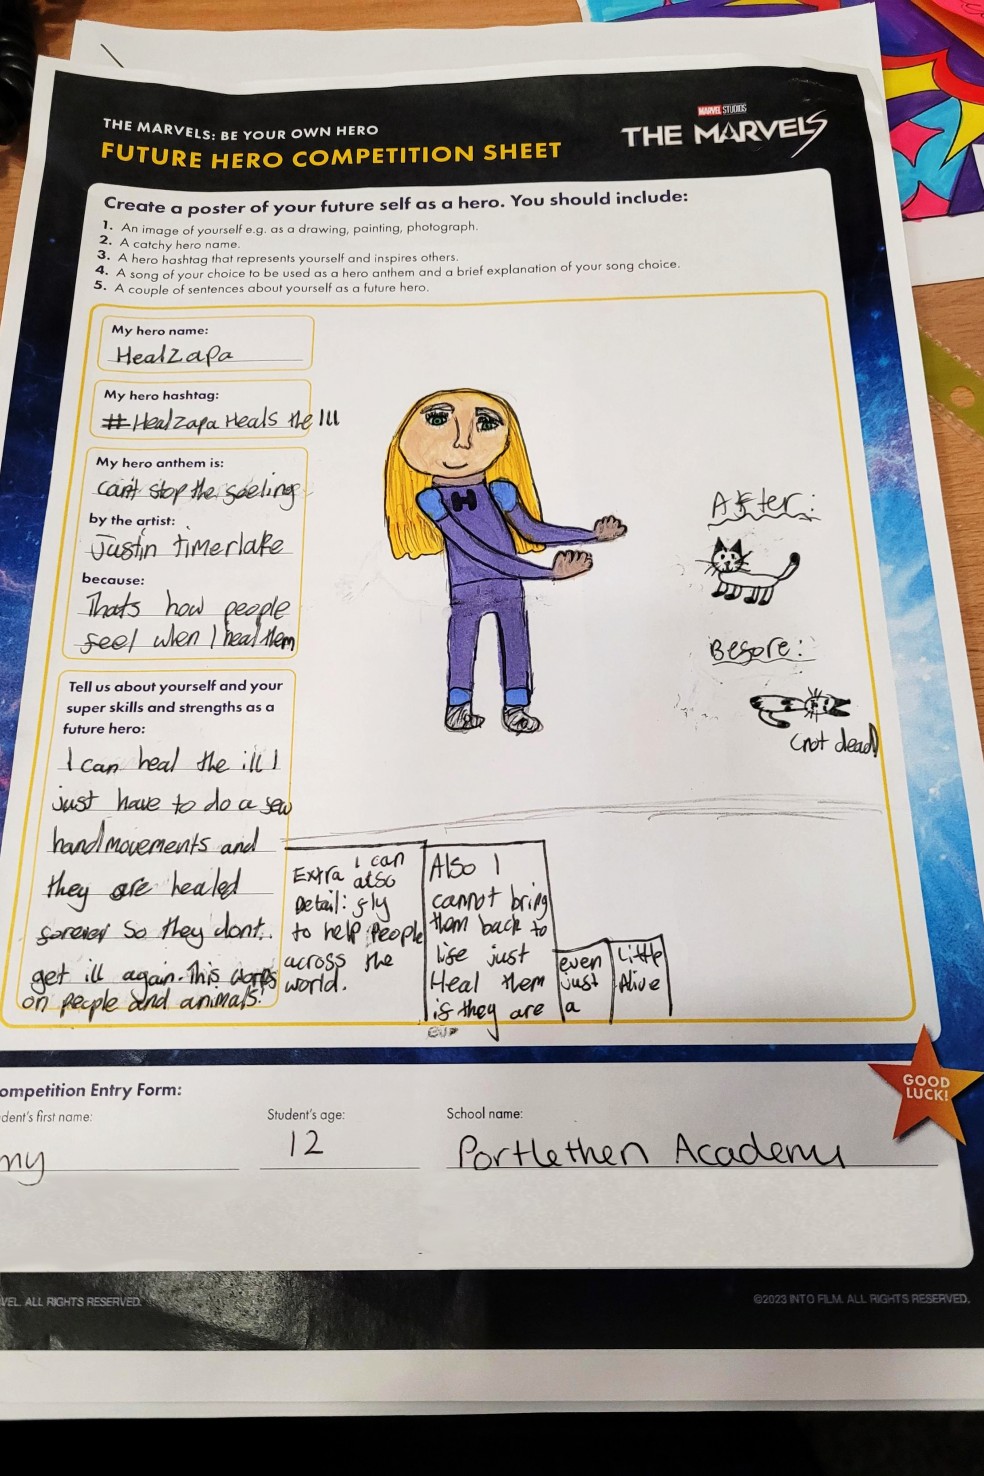 MARVEL STUDIOS
THE MARVELS
THE MARVELS: BE YOUR OWN HERO
FUTURE HERO COMPETITION SHEET
Create a poster of your future self as a hero. You should include:
1. An image of yourself e.g. as a drawing, painting, photograph.
2. A catchy hero name.
3. A hero hashtag that represents yourself and inspires others.
4. A song of your choice to be used as a hero anthem and a brief explanation of your song choice.
5. A couple of sentences about yourself as a future hero.
My hero name:
Healzapa
My hero hashtag:
#Healzapa Heals the Ill
My hero anthem is:
can't stop the feeling
by the artist:
Justin timerlake
because:
Thats how people
feel when I heal them
Tell us about yourself and your
super skills and strengths as a
future hero:
I can heal the ill I
just have to do a few
hand movements and
they are healed
forever so they dont
get ill again. This works
on people and animals!
H
After:
Before:
(not dead)
Extra I can
Detail: also fly
to help people
across the
world.
Also I
cannot bring
them back to
life just
Heal them
if they are
even
just
a
Little
Alive
GOOD
LUCK!
ompetition Entry Form:
dent's first name:
my
Student's age:
12
School name:
Portlethen Academy
VEL. ALL RIGHTS RESERVED.
©2023 INTO FILM. ALL RIGHTS RESERVED.